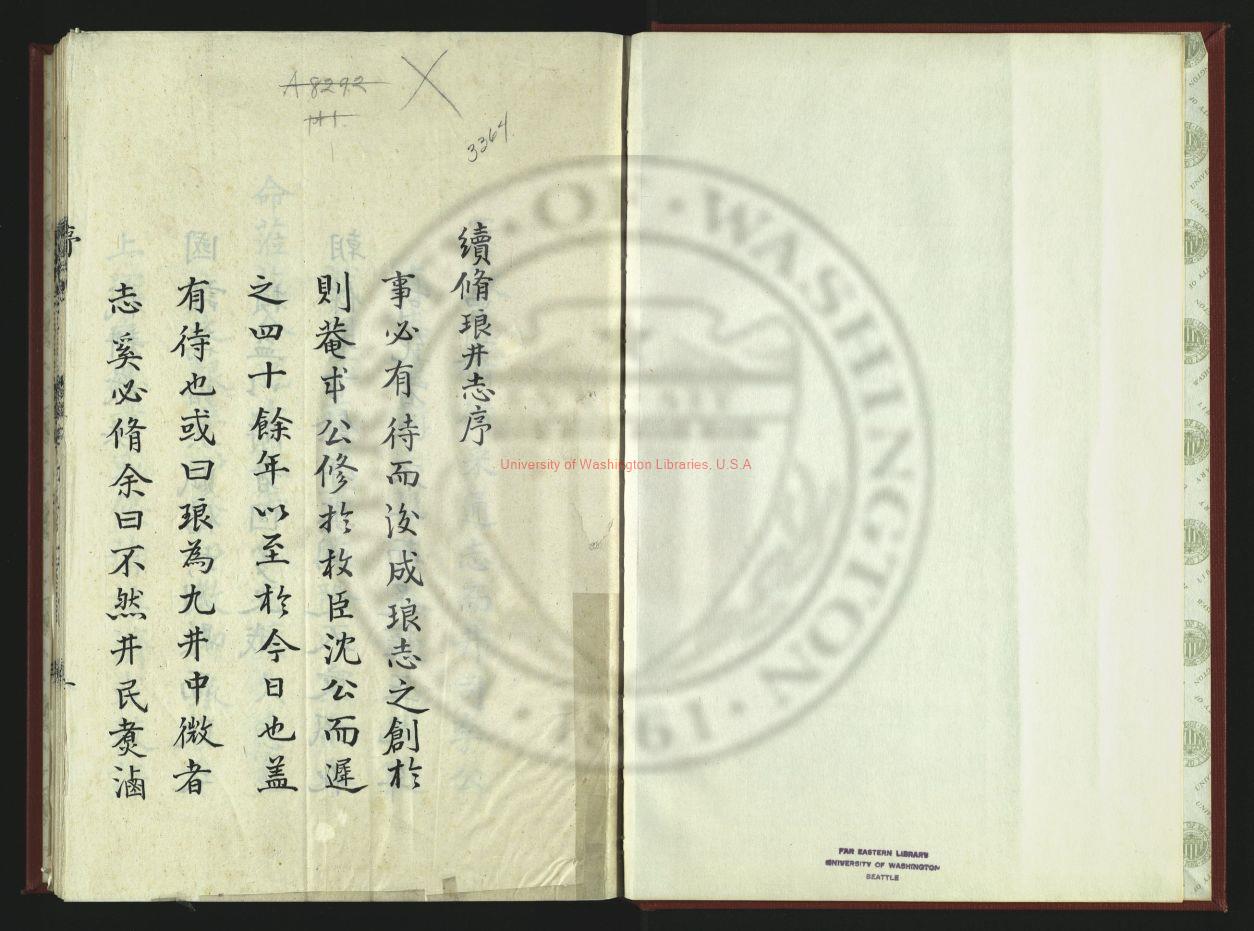 續脩琅井志序
事必有待而後成琅志之創於
則菴公修於牧臣沈公而遲
之四十餘年以至於今日也盖
有待也或曰琅為九井中微者
志奚必脩余曰不然井民煑滷
A 8292
3364.
UNIVERSITY OF WASHINGTON
1861
University of Washington Libraries, U.S.A
FAR EASTERN LIBRARY
UNIVERSITY OF WASHINGTON
SEATTLE